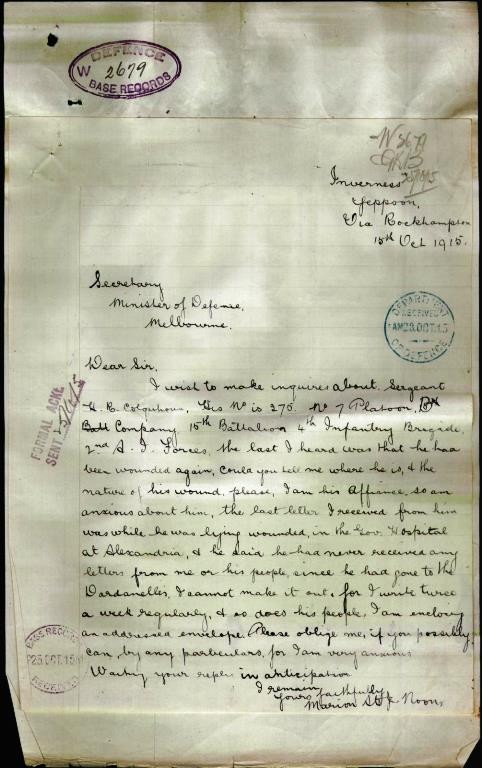 DEFENCE
W 2679
BASE RECORDS
Inverness
Yeppoon,
Via Rockhampton
15th Oct 1915.
Secretary
Minister of Defense,
Melbourne.
DEPARTMENT
RECEIVED
AM 23. OCT. 15
OF DEFENCE
Dear Sir,
I wish to make inquires about Sergeant
H. B. Colquhoun, His No is 275. No 7 Platoon, B
Company 15th Battalion 4th Infantry Brigade,
2nd A. I. Forces, the last I heard was that he had
been wounded again, could you tell me where he is, & the
nature of his wound, please, I am his Affiance, so am
anxious about him, the last letter I received from him
was while he was lying wounded, in the Gov. Hospital
at Alexandria, & he said he had never received any
letters from me or his people, since he had gone to the
Dardanelles, I cannot make it out, for I write twice
a week regularly, & so does his people, I am enclosing
an addressed envelope. Please oblige me, if you possibly
can, by any particulars, for I am very anxious
Waiting your reply in anticipation
I remain
Yours faithfully
Marion Noon
FORMAL ACKE
SENT
BASE RECORDS
25 OCT. 15
RECEIVED